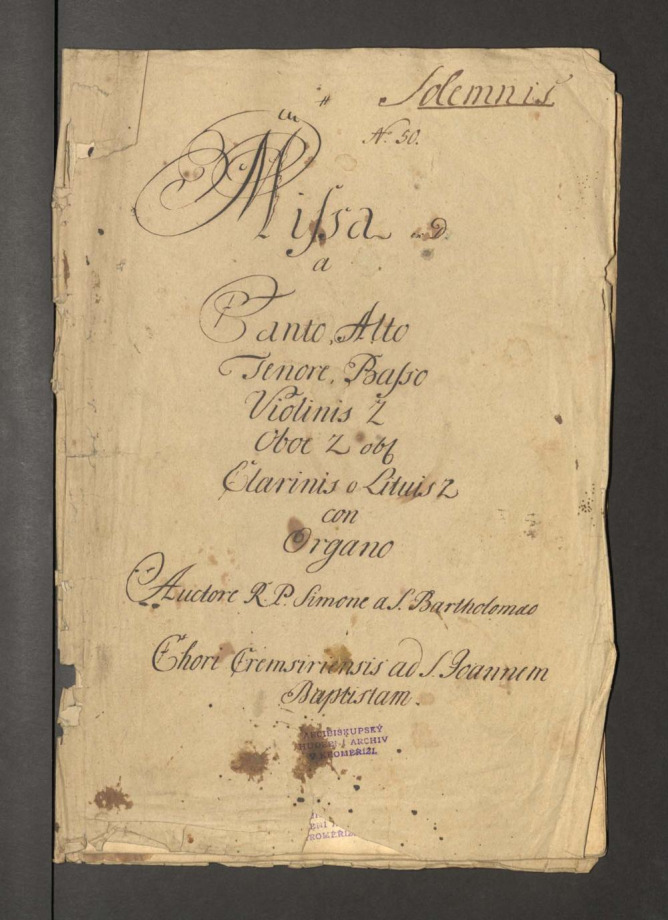 Solemnis
#
N: 50.
Missa in D.
a
Canto, Alto
Tenore, Basso
Violinis 2
Oboe 2 obl
Clarinis o Lituis 2
con
Organo
Auctore R. P. Simone a S. Bartholomæo
Chori Cremsiriensis ad S. Joannem
Baptistam.
ARCIBISKUPSKÝ
HUDEBNÍ ARCHIV
V KROMĚŘÍŽI.